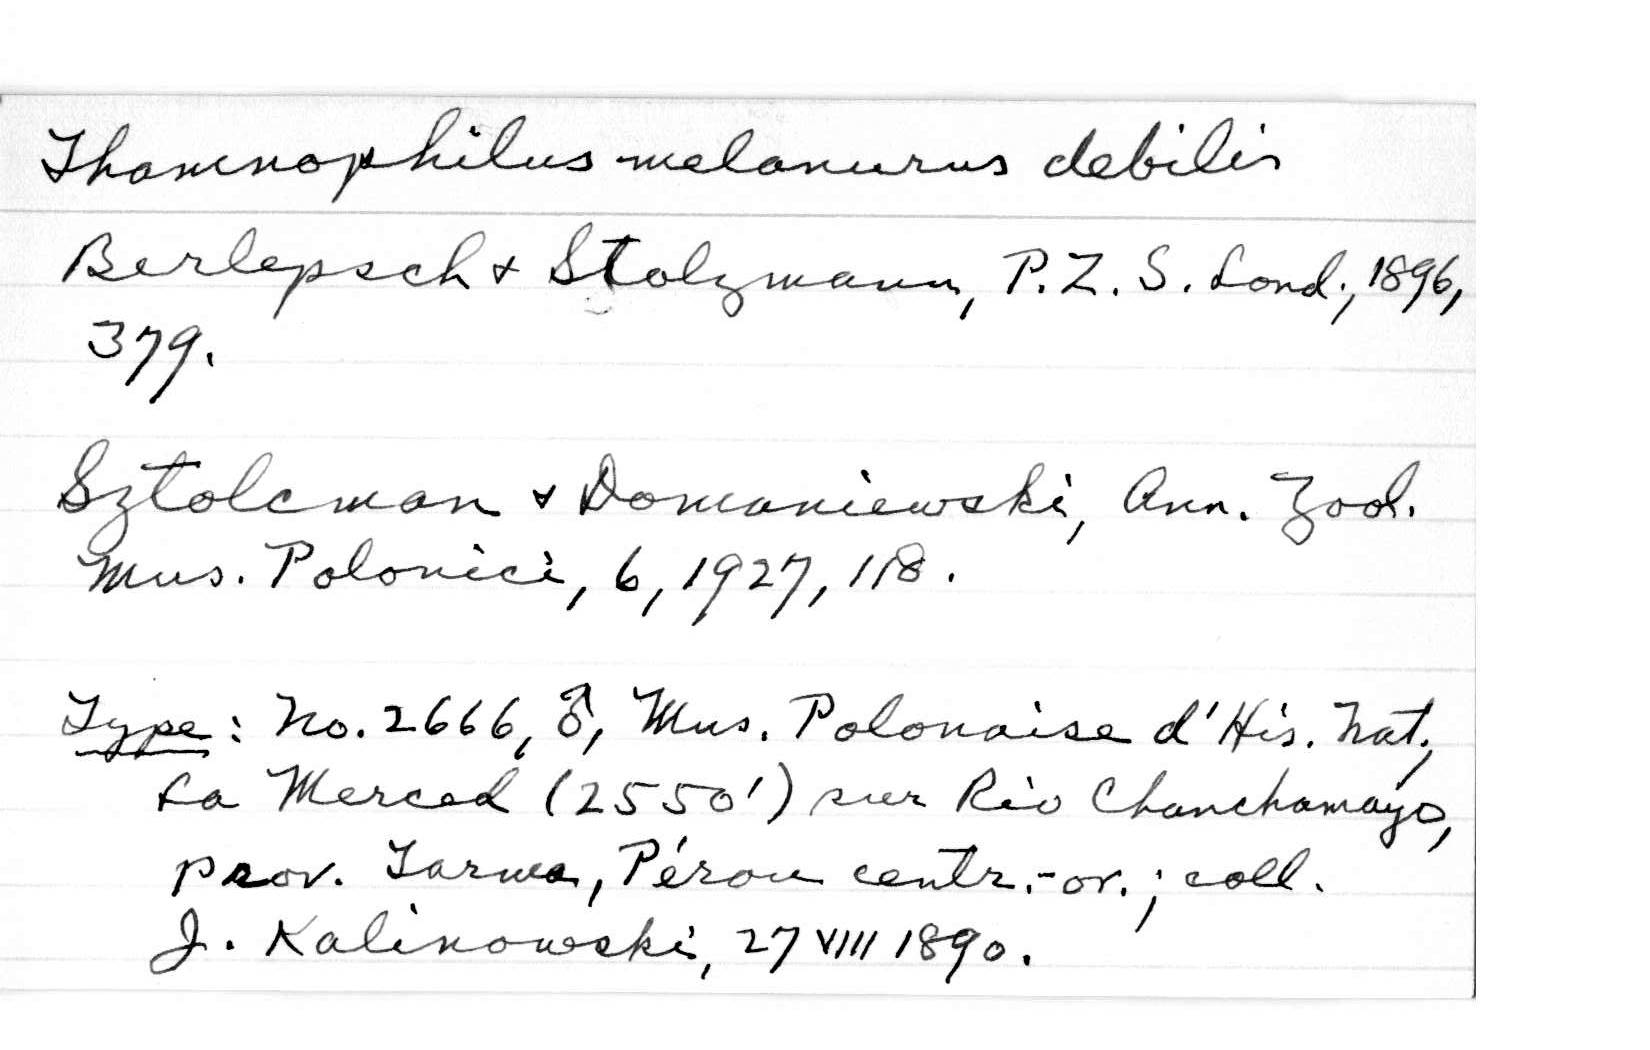 Thamnophilus melanurus debilis
Berlepsch & Stolzmann, P.Z.S. Lond., 1896,
379.
Sztolcman & Domaniewski, Ann. Zool.
Mus. Polonici, 6, 1927, 118.
Type: No. 2666, ♂, Mus. Polonaise d'His. Nat.,
La Merced (2550') sur Rio Chanchamayo,
prov. Tarma, Pérou centr.-or.; coll.
J. Kalinowski, 27 VIII 1890.